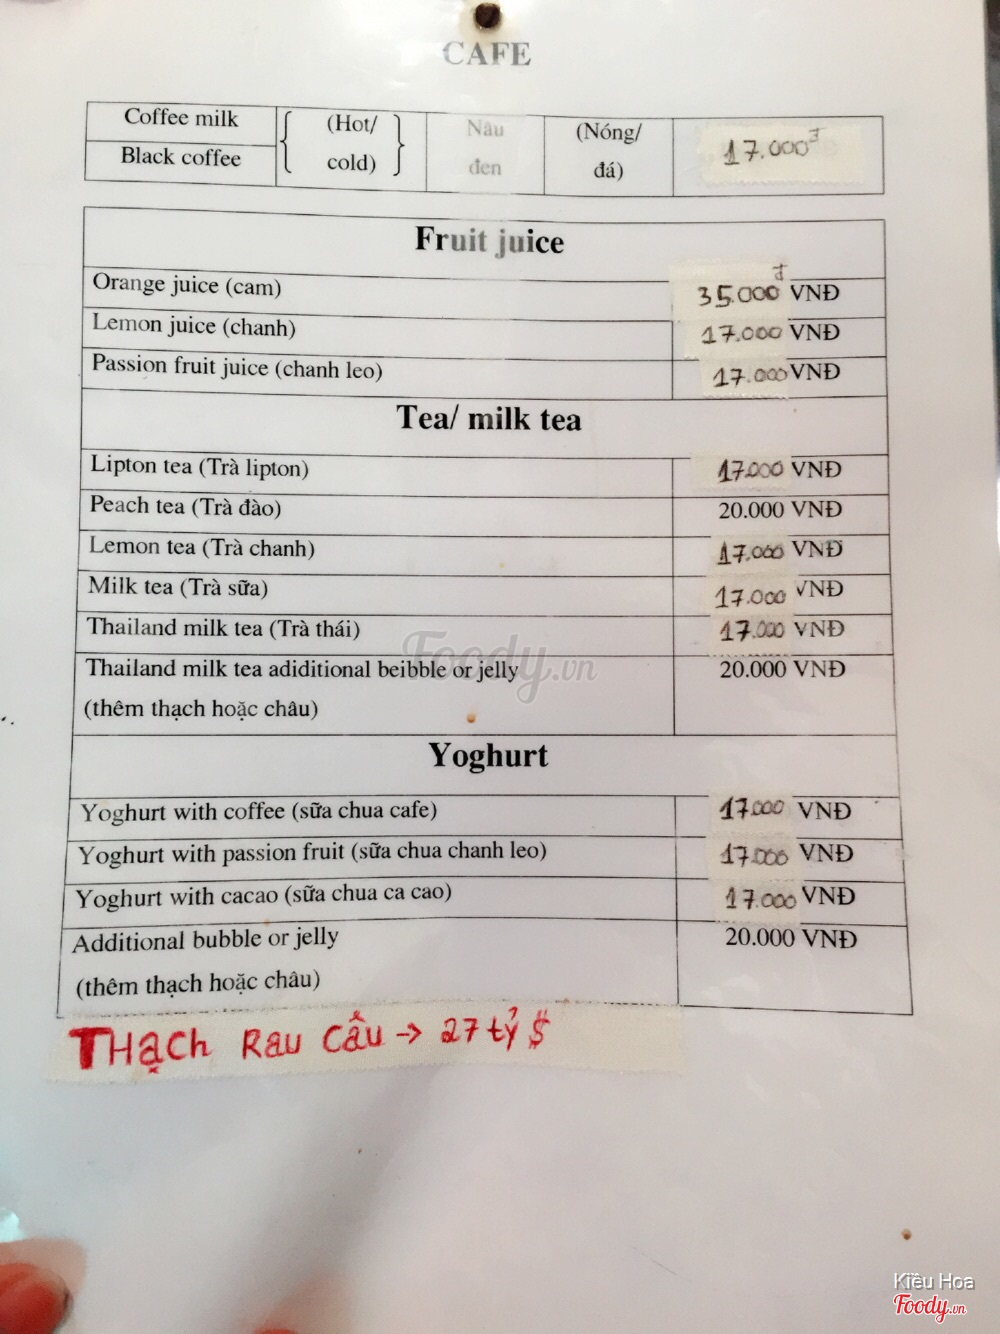 CAFE
Coffee milk
Black coffee
(Hot/
cold)
Nâu
đen
(Nóng/
đá)
17.000đ
Fruit juice
Orange juice (cam) 35.000đ VNĐ
Lemon juice (chanh) 17.000 VNĐ
Passion fruit juice (chanh leo) 17.000 VNĐ
Tea/ milk tea
Lipton tea (Trà lipton) 17.000 VNĐ
Peach tea (Trà đào) 20.000 VNĐ
Lemon tea (Trà chanh) 17.000 VNĐ
Milk tea (Trà sữa) 17.000 VNĐ
Thailand milk tea (Trà thái) 17.000 VNĐ
Thailand milk tea adiditional beibble or jelly 20.000 VNĐ
(thêm thạch hoặc châu)
Foody.vn
Yoghurt
Yoghurt with coffee (sữa chua cafe) 17.000 VNĐ
Yoghurt with passion fruit (sữa chua chanh leo) 17.000 VNĐ
Yoghurt with cacao (sữa chua ca cao) 17.000 VNĐ
Additional bubble or jelly 20.000 VNĐ
(thêm thạch hoặc châu)
THạcH RAU CÂU → 27 tỷ $
Kiều Hoa
Foody.vn